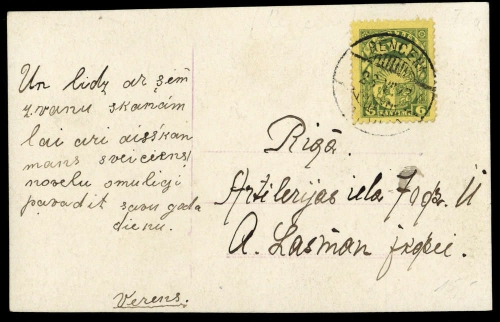 Un līdz ar šēm
zvanu skaņām
lai ari aisskan
mans sveiciens!
novēlu omulīgi
pavadīt savu gada
dienu.
Verens.
Rīgā
Artilerijas iela
A. Lasman jkdzei.
6 6